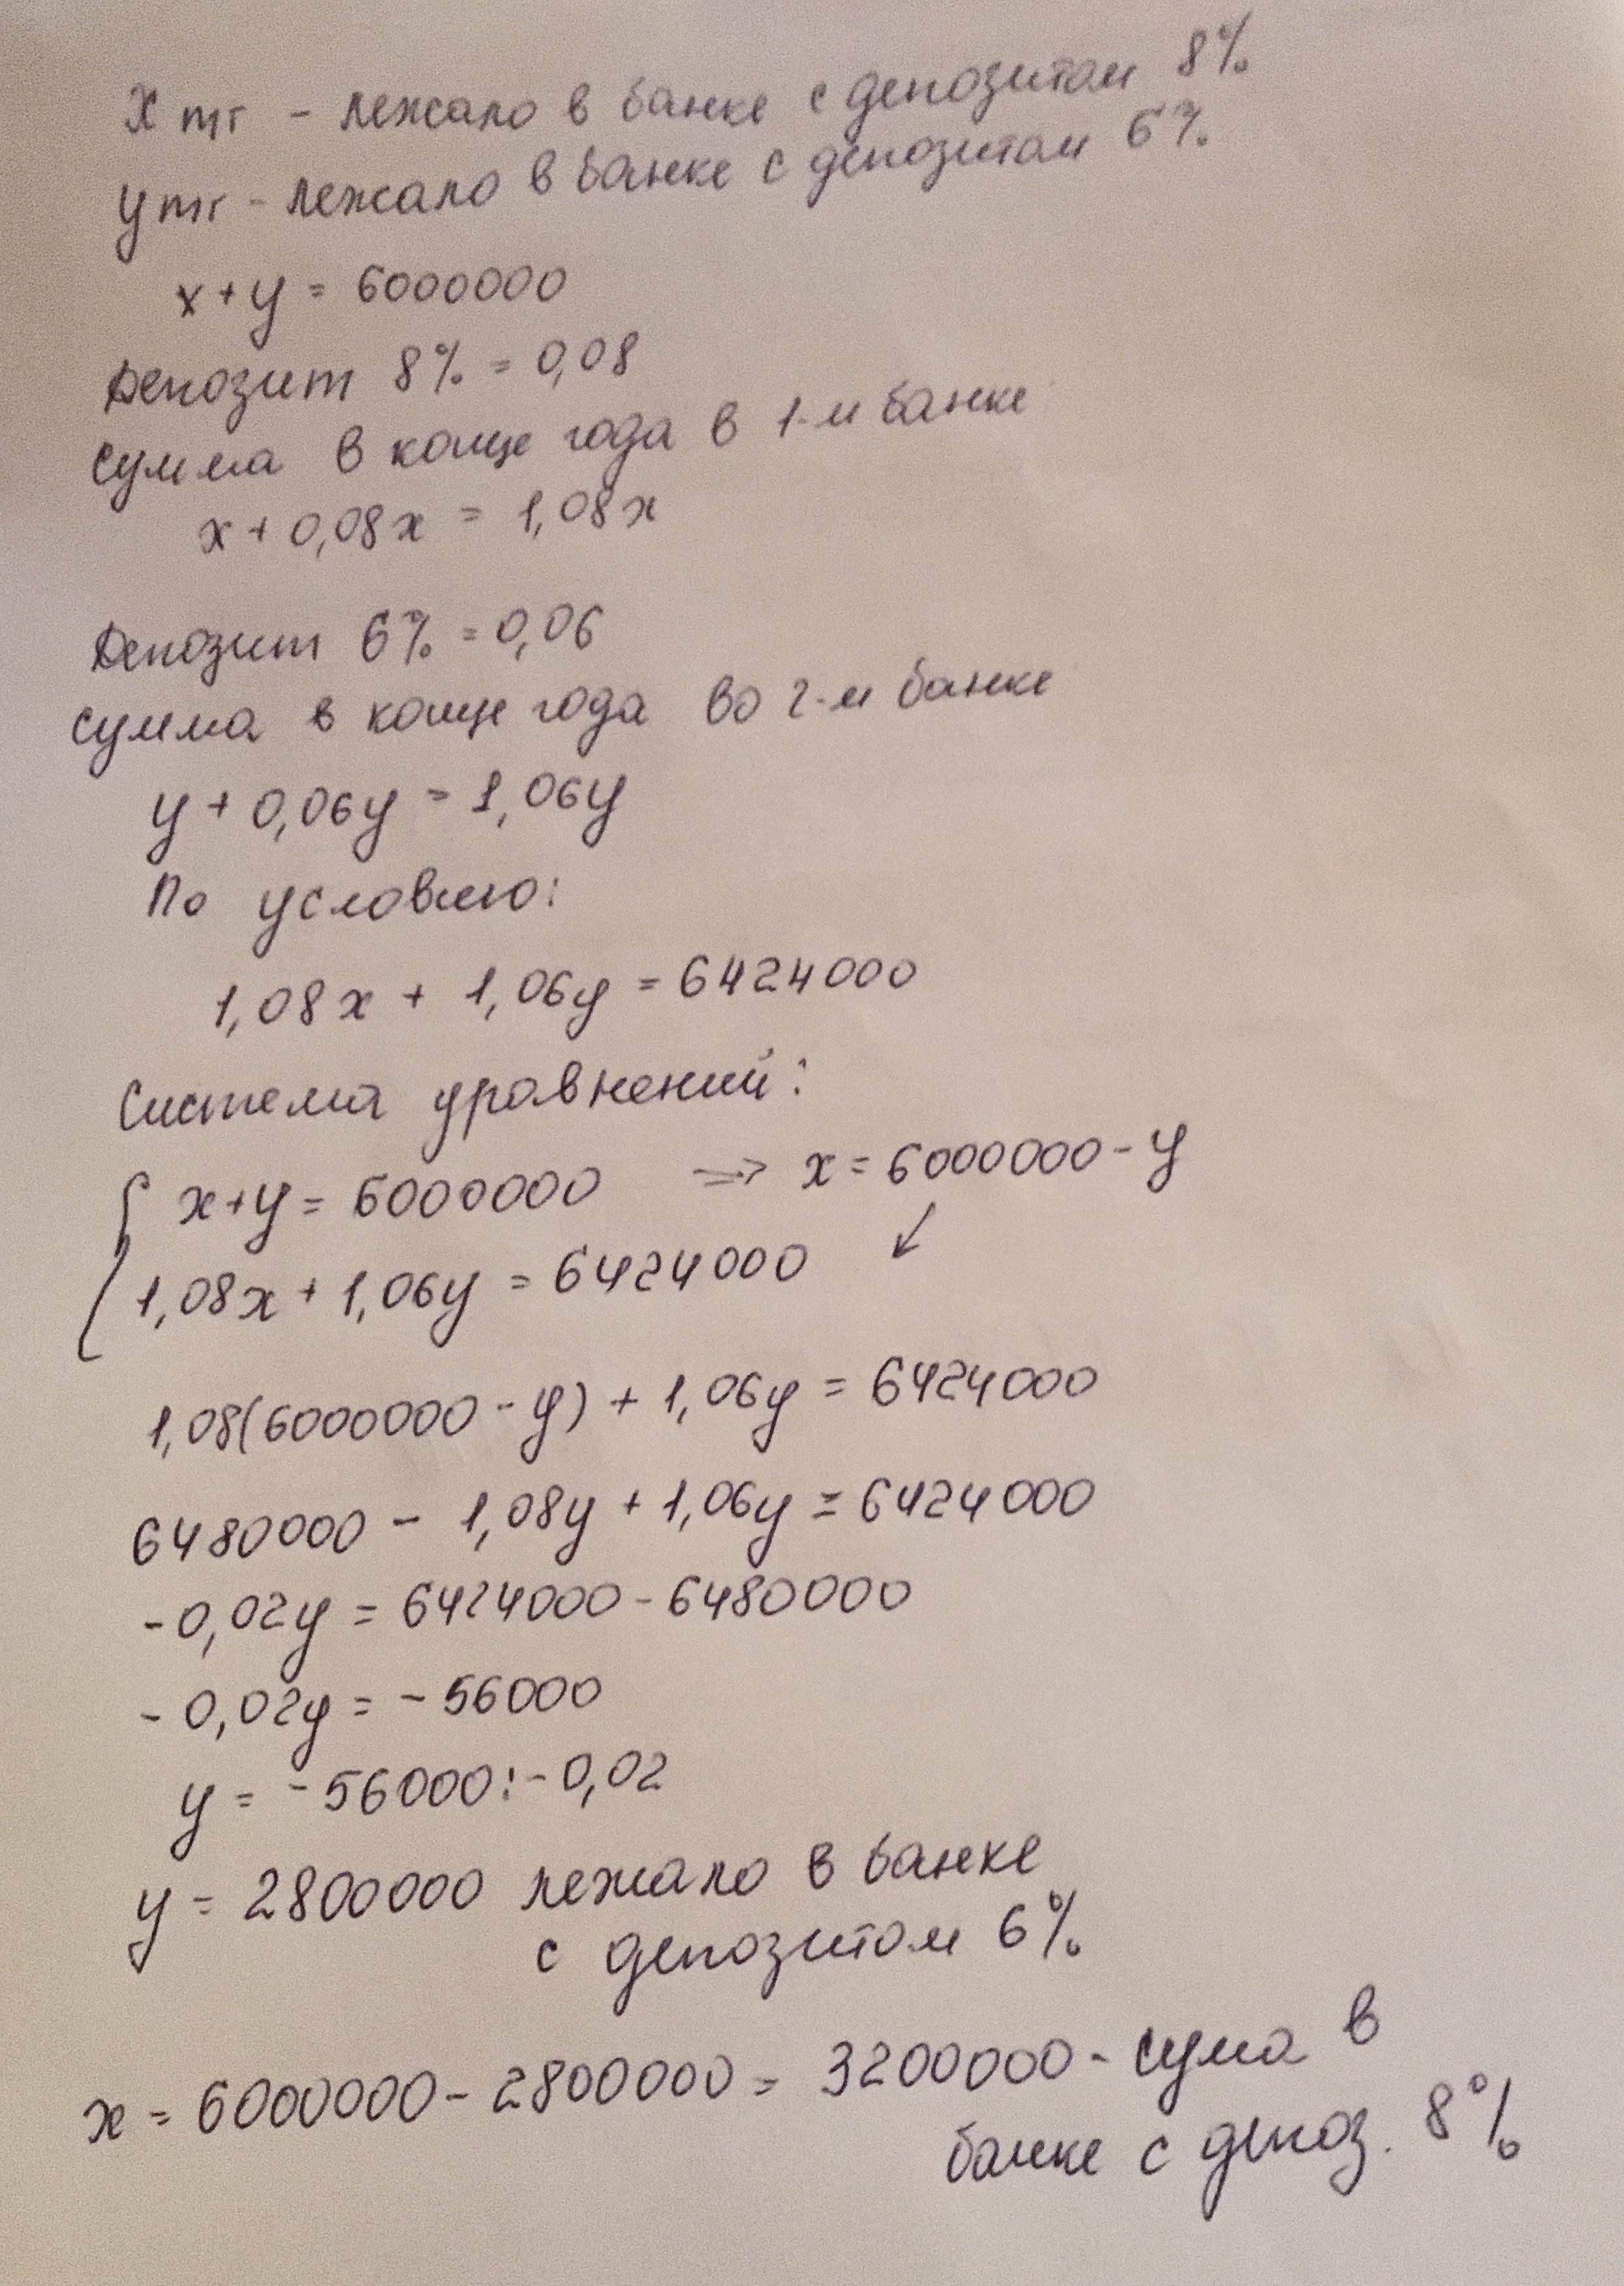 X тг - лежало в банке с депозитом 8%
y тг - лежало в банке с депозитом 6%
x + y = 6000000
Депозит 8% = 0,08
сумма в конце года в 1-м банке
x + 0,08x = 1,08x
Депозит 6% = 0,06
сумма в конце года во 2-м банке
y + 0,06y = 1,06y
По условию:
1,08x + 1,06y = 6424000
Система уравнений:
{ x+y = 6000000 => x = 6000000 - y
1,08x + 1,06y = 6424000 ↙
1,08(6000000 - y) + 1,06y = 6424000
6480000 - 1,08y + 1,06y = 6424000
-0,02y = 6424000 - 6480000
-0,02y = -56000
y = -56000 : -0,02
y = 2800000 лежало в банке
с депозитом 6%
x = 6000000 - 2800000 = 3200000 - сума в
банке с депоз. 8%